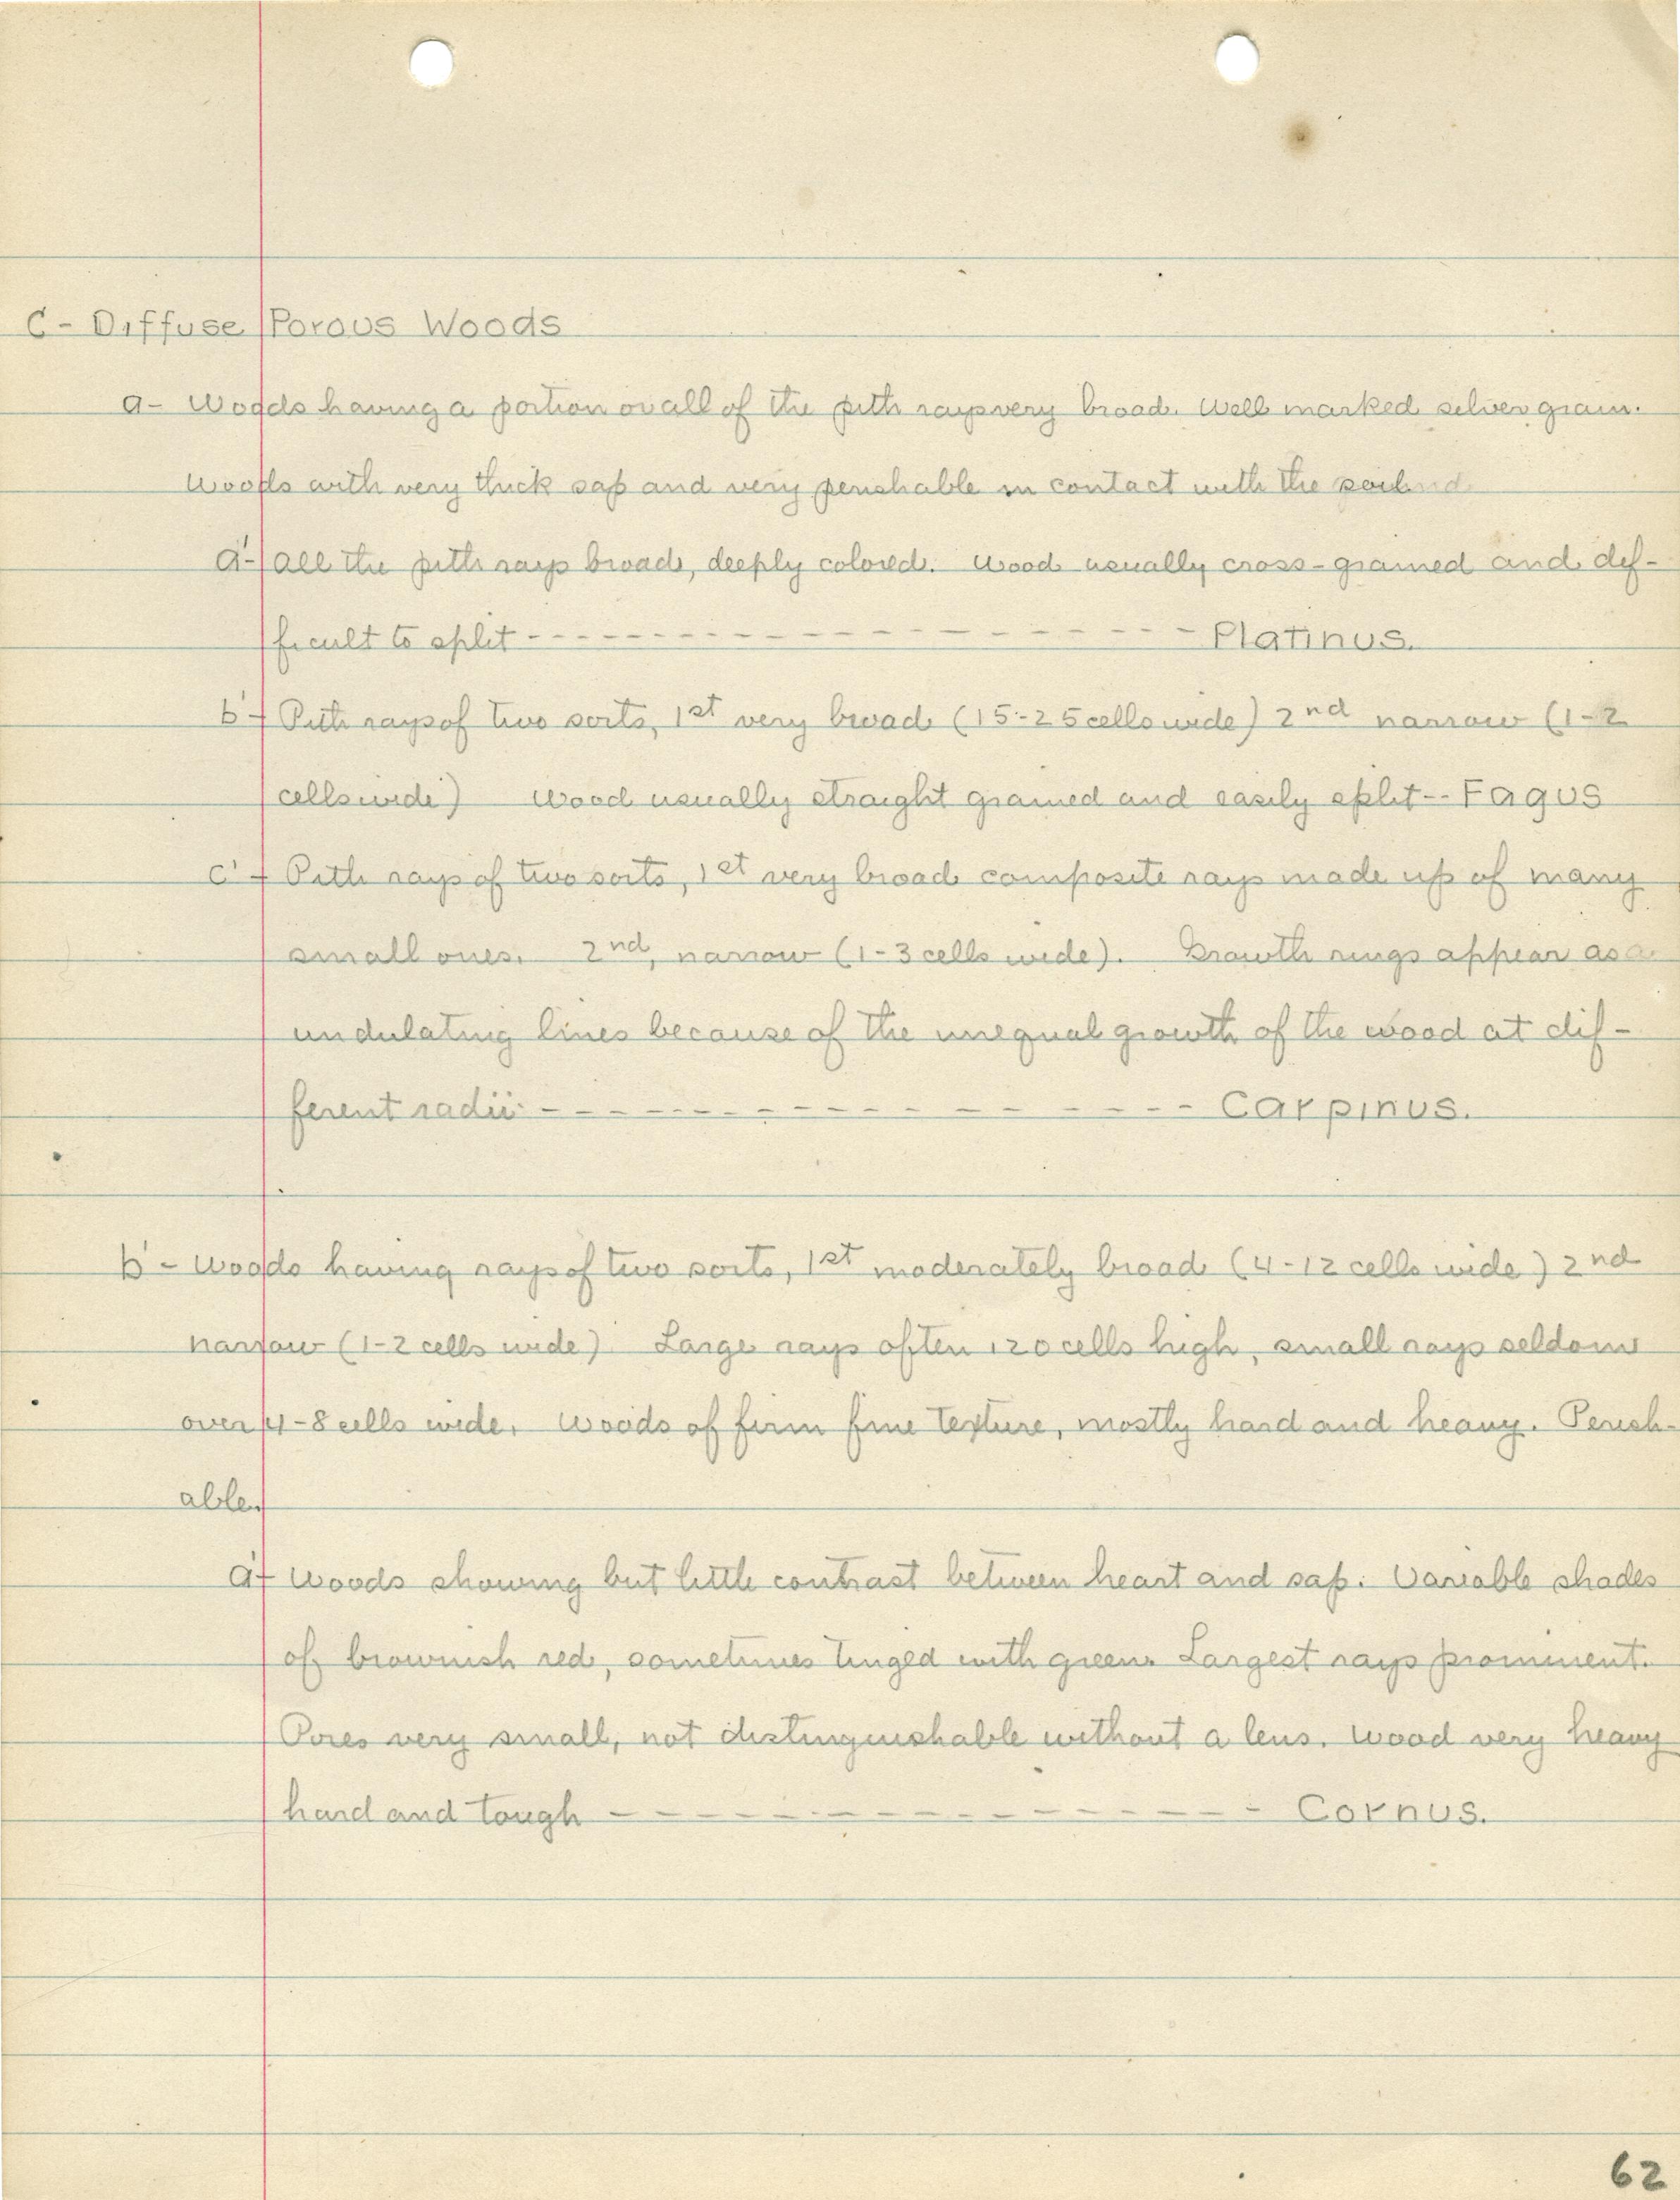 C - Diffuse Porous Woods
a - Woods having a portion or all of the pith rays very broad. Well marked silver grain.
Woods with very thick sap and very perishable in contact with the soil
a' - All the pith rays broad, deeply colored. Wood usually cross-grained and dif-
ficult to split - - - - - - - - - - - - - - - - - - Platinus.
b' - Pith rays of two sorts, 1st very broad (15-25 cells wide) 2nd narrow (1-2
cells wide) Wood usually straight grained and easily split -- Fagus
c' - Pith rays of two sorts, 1st very broad composite rays made up of many
small ones. 2nd, narrow (1-3 cells wide). Growth rings appear as
undulating lines because of the unequal growth of the wood at dif-
ferent radii - - - - - - - - - - - - - - - - - - Carpinus.
b - Woods having rays of two sorts, 1st moderately broad (4-12 cells wide) 2nd
narrow (1-2 cells wide) Large rays often 120 cells high, small rays seldom
over 4-8 cells wide. Woods of firm fine texture, mostly hard and heavy. Perish-
able.
a' - Woods showing but little contrast between heart and sap. Variable shades
of brownish red, sometimes tinged with green. Largest rays prominent.
Pores very small, not distinguishable without a lens. Wood very heavy
hard and tough - - - - - - - - - - - - - - - - - Cornus.
62